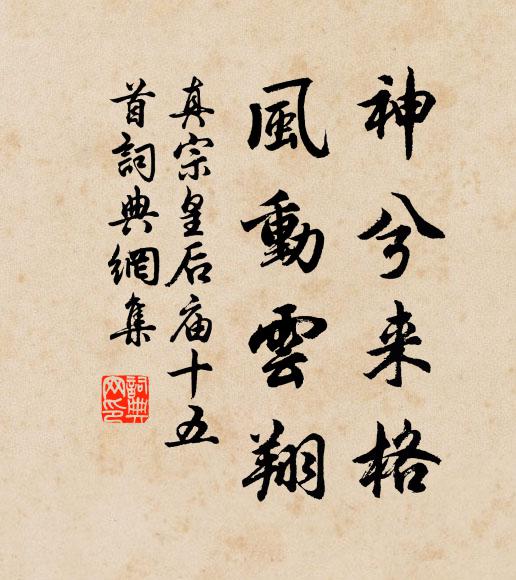 神兮来格
風動雲翔
真宗皇后庙十五
首詞典網集
詞典
网印